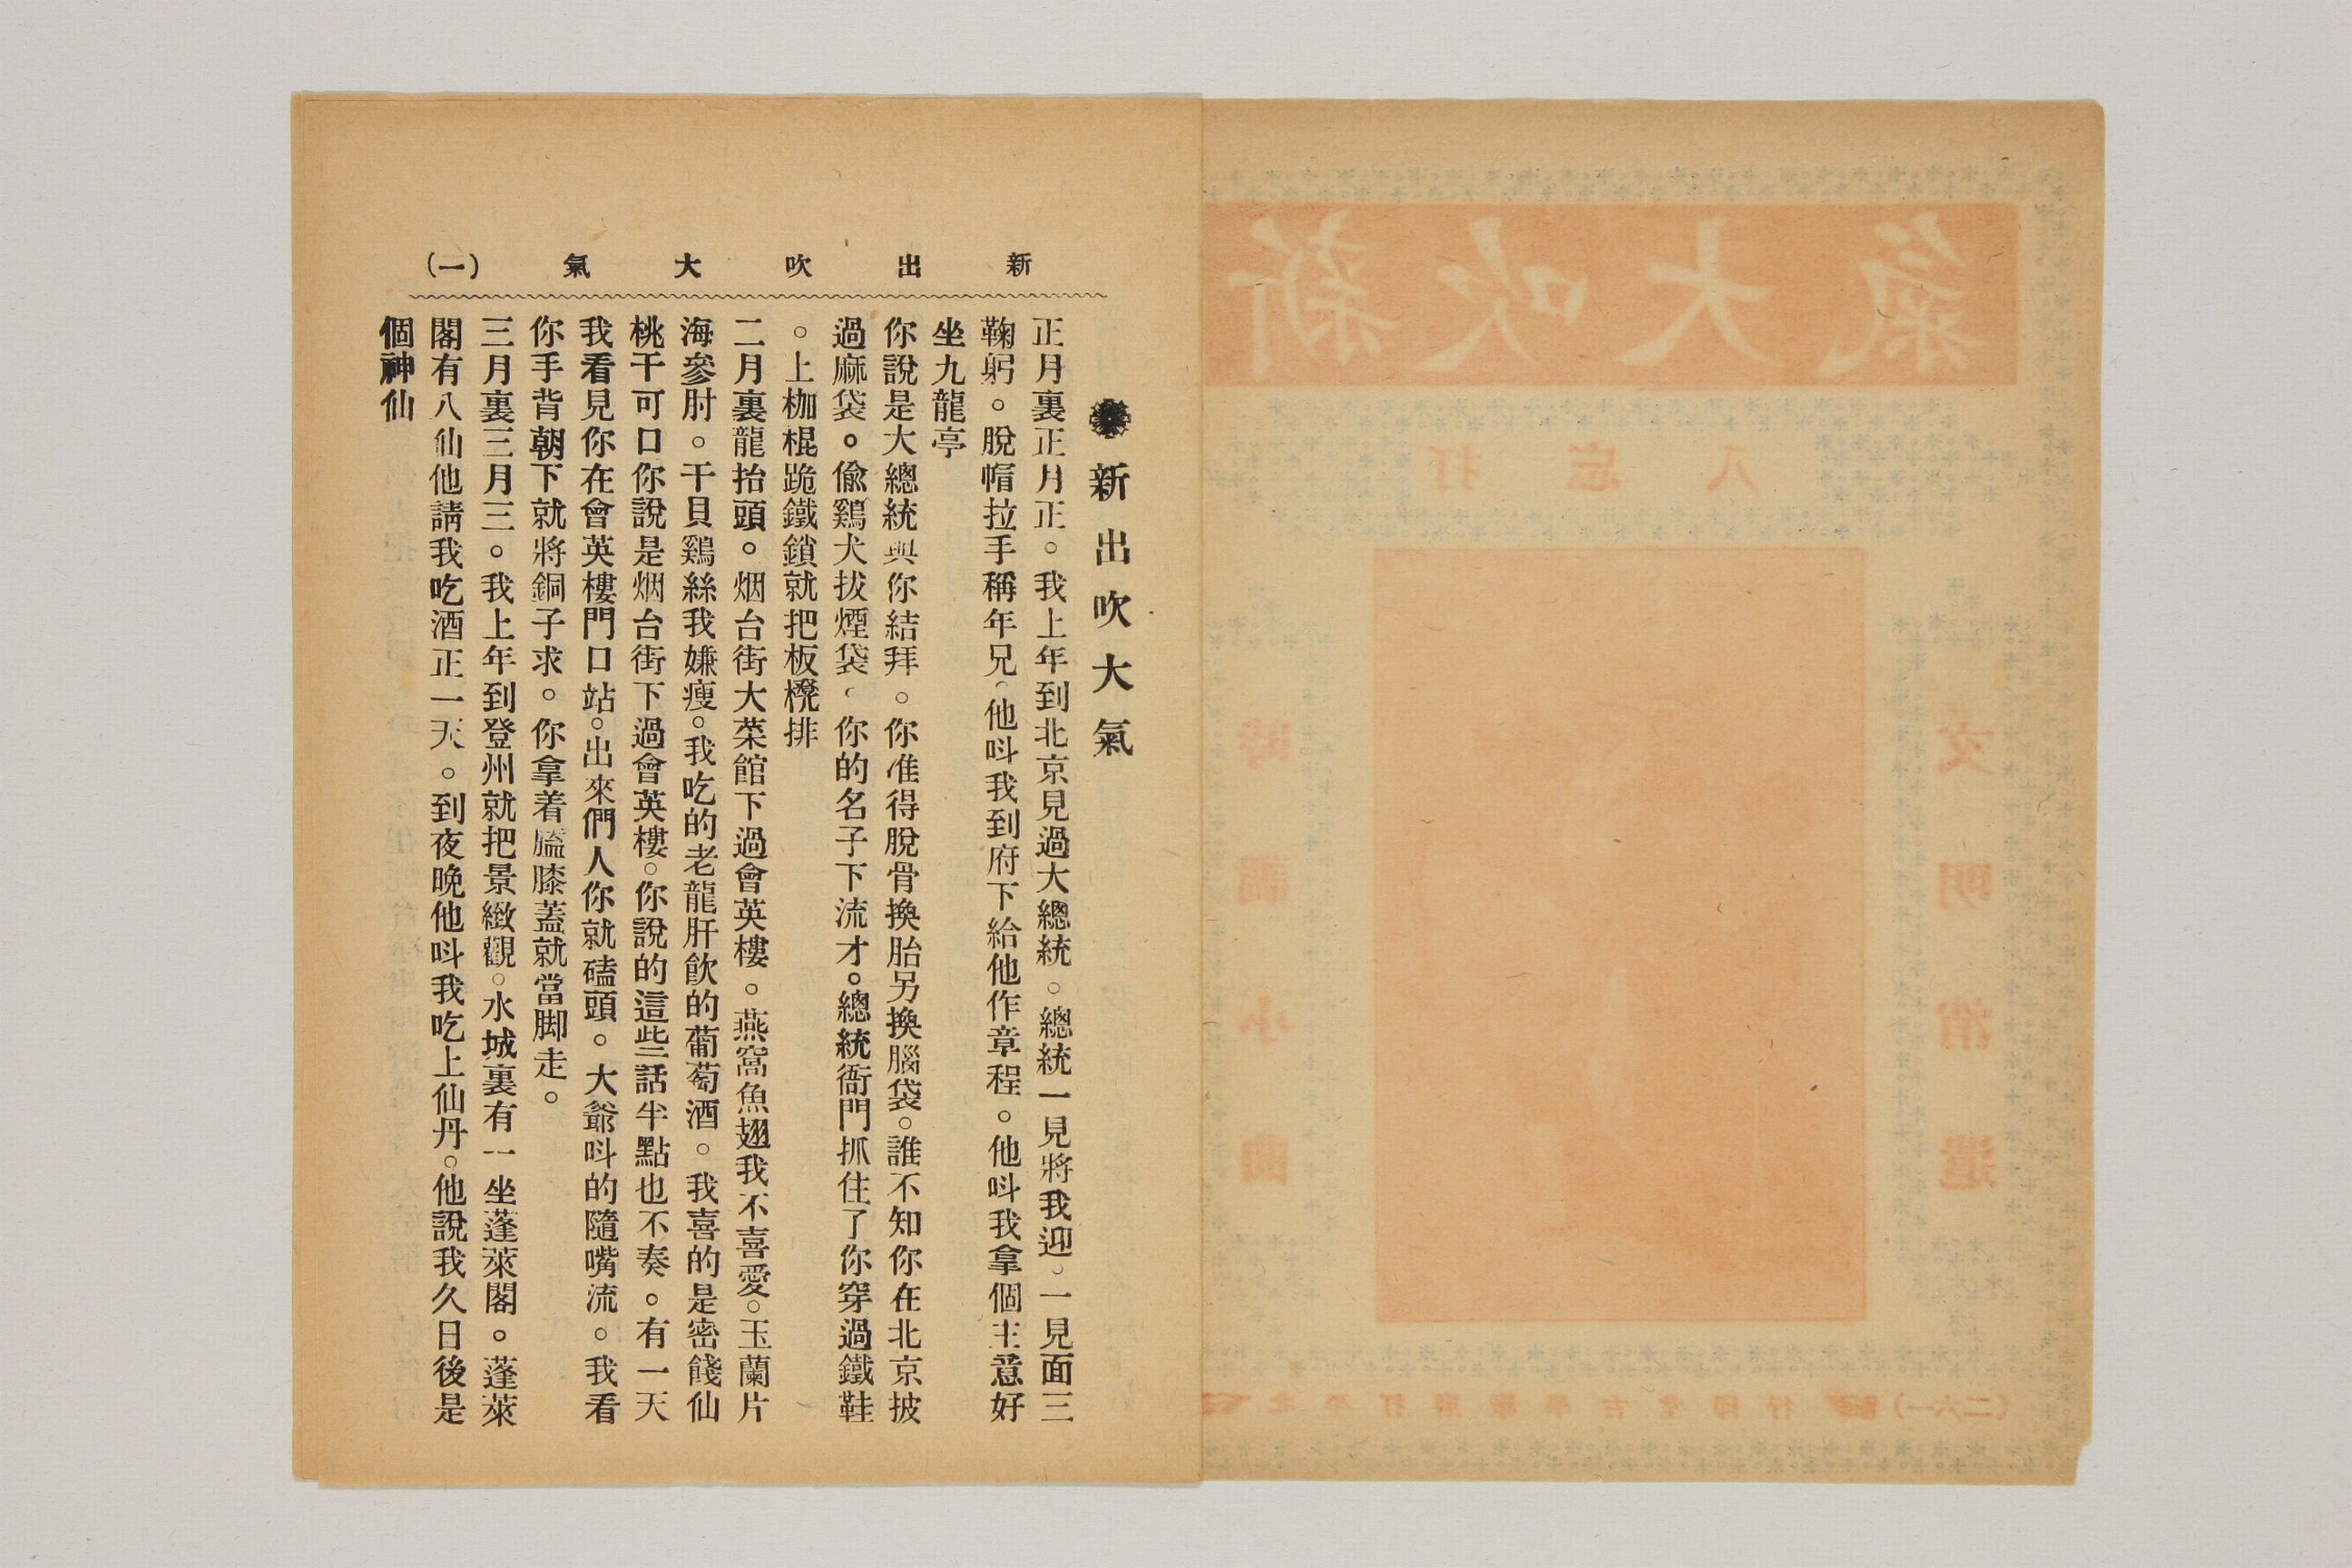 新出吹大氣 (一)
新出吹大氣
正月裏正月正。我上年到北京見過大總統。總統一見將我迎。一見面三
鞠躬。脫帽拉手稱年兄。他呌我到府下給他作章程。他呌我拿個主意好
坐九龍亭
你說是大總統與你結拜。你准得脫骨換胎另換腦袋。誰不知你在北京披
過麻袋。偷鷄犬拔煙袋。你的名子下流才。總統衙門抓住了你穿過鐵鞋
。上枷棍跪鐵鎖就把板櫈排
二月裏龍抬頭。烟台街大菜館下過會英樓。燕窩魚翅我不喜愛。玉蘭片
海參肘。干貝鷄絲我嫌瘦。我吃的老龍肝飲的葡萄酒。我喜的是密餞仙
桃干可口你說是烟台街下過會英樓。你說的這些話半點也不奏。有一天
我看見你在會英樓門口站。出來們人你就磕頭。大爺呌的隨嘴流。我看
你手背朝下就將銅子求。你拿着膝蓋就當脚走。
三月裏三月三。我上年到登州就把景緻觀。水城裏有一坐蓬萊閣。蓬萊
閣有八仙他請我吃酒正一天。到夜晚他呌我吃上仙丹。他說我久日後是
個神仙
新吹大氣
打忘八
文明消遣
時調小曲
(二六一)